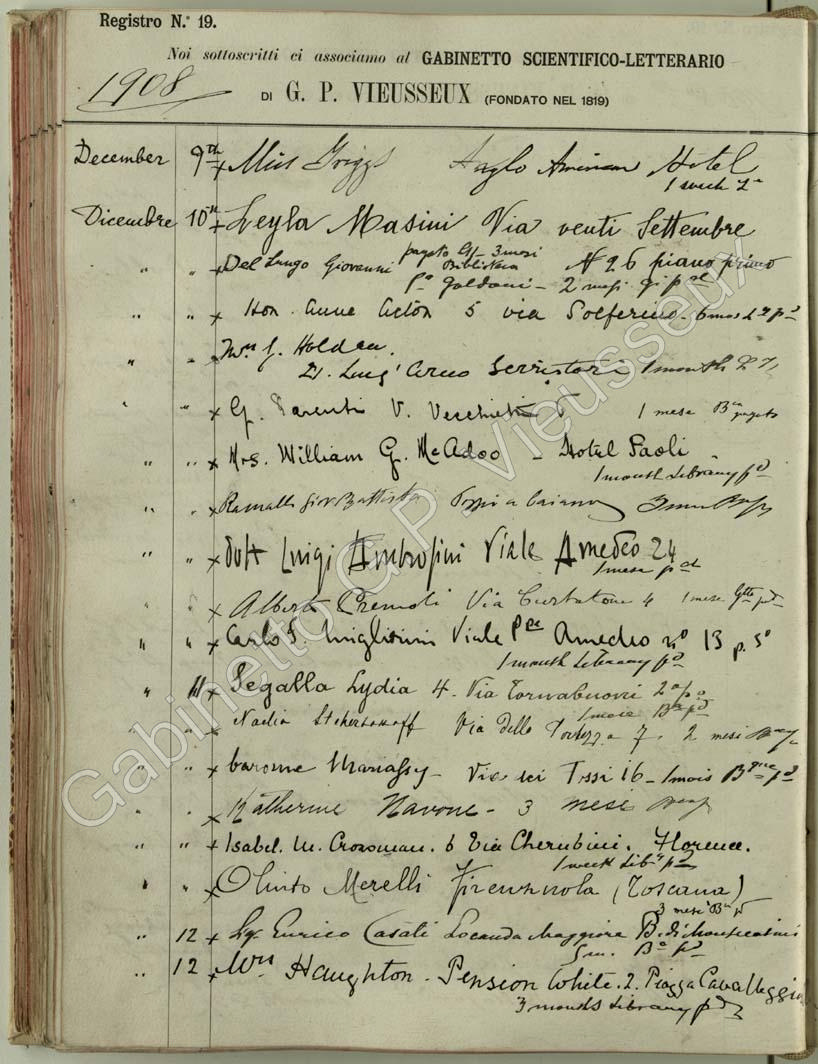 Registro N.º 19.
Noi sottoscritti ci associamo al GABINETTO SCIENTIFICO-LETTERARIO
1908
DI G. P. VIEUSSEUX (FONDATO NEL 1819)
December 9th x Miss Griggs Anglo American Hotel
1 week
Dicembre 10th x Leyla Masini Via venti Settembre
" " x Del Lungo Giovanni pagato 3 mesi Biblioteca N 26 piano primo
2 mesi
" " x Hon. Anne Acton 5 via Solferino. 6 mos
" " x Holden.
21. Lung' Arno Serristori 1 month
" " x G. Parenti V. Vecchietti 1 mese pagato
" " x Mrs. William G. McAdoo - Hotel Paoli
1 month Library pd
" " x Battista Caiano
" " x Dott Luigi Ambrosini Viale Amedeo 24
1 mese pd
" " x Alberto Via Curtatone 4 1 mese
" " x Carlo Viale Ppe Amedeo no 13 p. 3o
1 month Library pd
" 11 x Segalla Lydia 4. Via Tornabuoni 2o po
1 mese
" " x Nadia Via della Fortezza 7. 2 mesi
" " x barone Via dei 16 - 1 mois
" " x Katherine Navone - 3 mesi
" " x Isabel. M. Crossman. 6 Via Cherubini. Florence.
1 week Liby pd
" " x Olinto Merelli Firenzuola (Toscana)
3 mesi
" 12 x Enrico Casati Locanda Maggiore B. di Montecatini
" 12 x Mrs Haughton - Pension White. 2. Piazza Cavalleggieri
3 months Library pd
Gabinetto G.P. Vieusseux